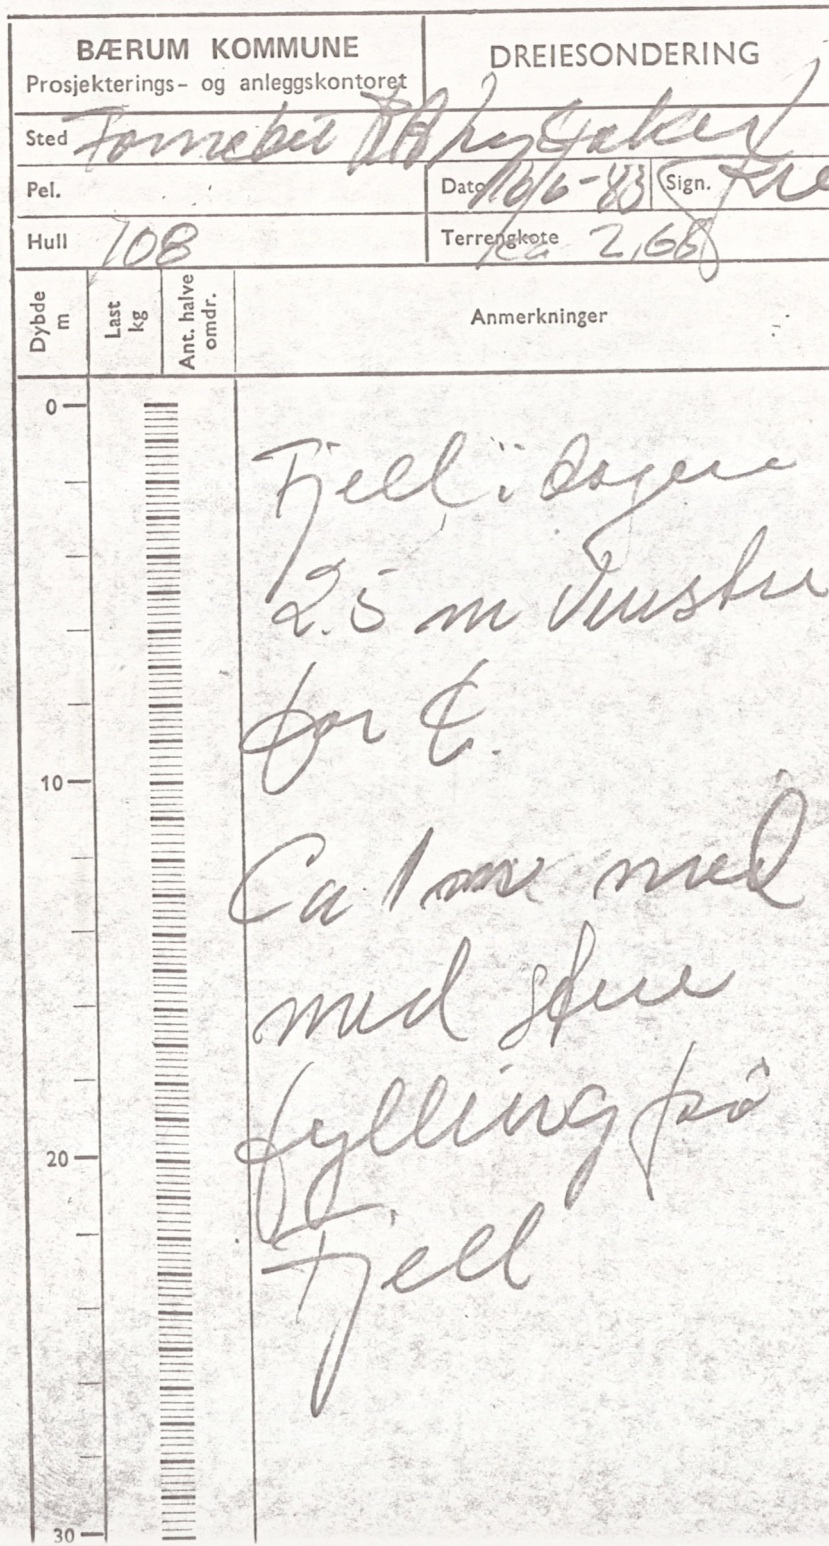 BÆRUM KOMMUNE
Prosjekterings- og anleggskontoret
DREIESONDERING
Sted Fornebu Lysaker
Pel.
Dato 16/6-83 Sign.
Hull 108
Terrengkote ca 2,68
Dybde m
Last kg
Ant. halve omdr.
Anmerkninger
0
Fjell i dagen
2.5 m venstre
for ℄.
10
Ca 1 m med
med
fylling på
20
Fjell
30